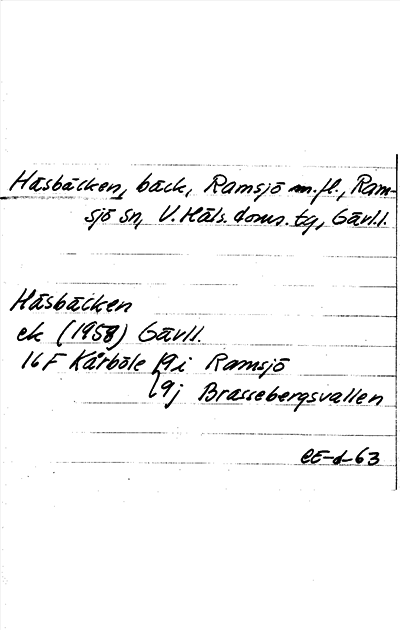 Håsbäcken, bäck, Ramsjö m.fl., Ram-
sjö sn, V. Häls. doms. tg, Gävl.l.
Håsbäcken
ek (1958) Gävl.l.
16 F Kårböle { 9 i Ramsjö
9 j Brassebergsvallen
CE-d-63